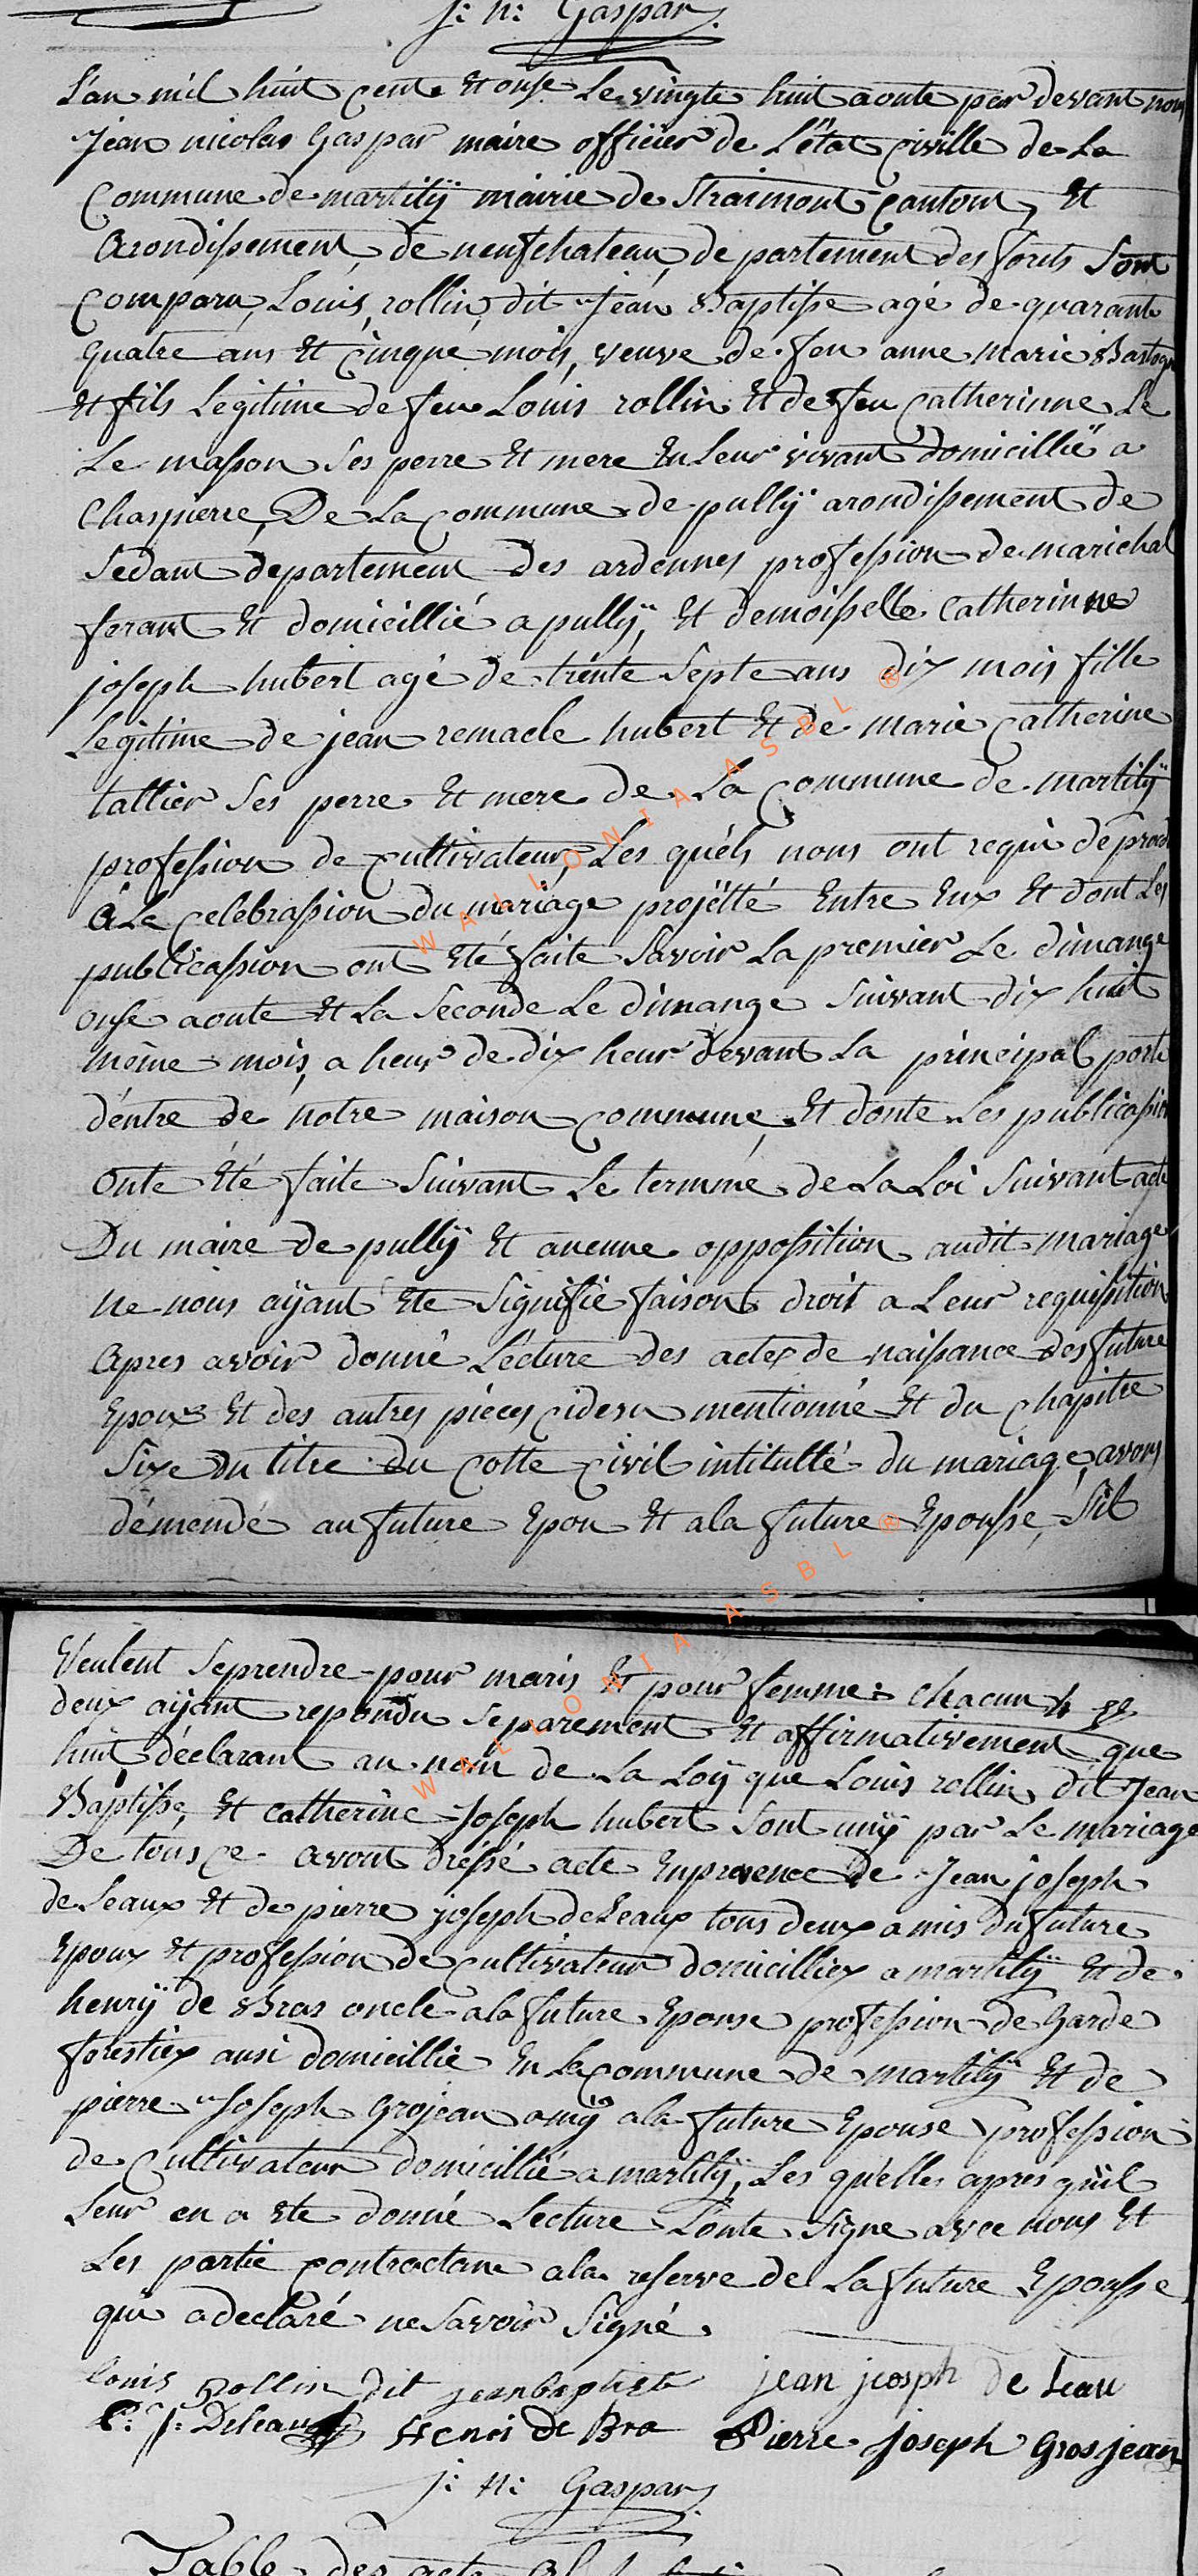 J: N: Gaspar
L'an mil huit cente Et onse Le vingte huit aoute par devant nous
Jean nicolas Gaspar maire officier de L'état civille de La
Commune de martilÿ mairie de Straimont canton, Et
Arondissement, de neufchateau, de partement des forets Sont
Comparu, Louis, rollin, dit Jean Baptisse agé de quarante
quatre ans Et cinque mois, veuve de feu anne marie Bastogne
Et fils Legitime de feu Louis rollin Et de feu Catherinne Le
Le masson Ses perre Et mere En Leur vivant domicillié a
Chaspierre, De La Commune de pullÿ arondissement de
Sedant departement Des ardennes profession de marichal
ferant Et domicillié a pullÿ, Et demoisselle Catherinne
joseph hubert agé de trente Septe ans dix mois fille
Legitime de jean remacle hubert Et de marie Catherine
tallier Ses perre Et mere de La Commune de martilÿ
profession de cultivateur, Les quels nous ont requi de procé
a La celebrassion du mariage projetté Entre Eux Et dont Les
publicassion ont Eté faite Savoir La premier Le dimange
onse aoute Et La Seconde Le dimange Suivant dix huit
même mois, a heur de dix heur devant La principal porte
d'entre de notre maison commune, Et donte Les publicassion
onte Eté faite Suivant Le termme de La Loi Suivant acte
Du maire de pullÿ Et aucune oppossition audit mariage
ne nous aÿant Ete Signifie faisont droit a Leur requisition
apres avoir donné Lecture des actes de naissance des future
Epoux Et des autres pièces cidesu mentionné Et du chapitre
Sixe du titre du Cotte civil intitullé du mariage, avons
démendé au future Epou Et a la future Epousse, Sil
Veulent Se prendre pour maris Et pour femme: chacun
deux aÿant repondu Séparement Et affirmativement que
huit, déclarant au nom de La Loÿ que Louis rollin dit Jean
Baptisse, Et Catherine Joseph hubert Sont unÿ par Le mariage
De tous ce avont dréssé acte Enpresence de Jean joseph
de Leaux Et de pierre joseph de Leaux tous deux amis du future
Epoux Et profession de cultivateur domicilliex a martilÿ Et de
henrÿ de Bras oncle a la future Epouse profession de Garde
forestiex ausi domicillie En La Commune de martilÿ Et de
pierre Joseph Grojean amÿ a la future Epouse profession
de Cultivateur domicillié a martilÿ, Les quelles apres quil
Leur en a Ete donné Lecture L'onte Signe avec nous Et
Les partie contractane a la reserve de La future Epousse
qui a declaré ne Savoir Signé.
louis Rollin dit jeanbaptiste jean jeosph de Leau
P: J: Deleau Henri De Bra Pierre joseph Grosjean
J: N: Gaspar
Table des acte
WALLONIA ASBL ®
WALLONIA ASBL ®